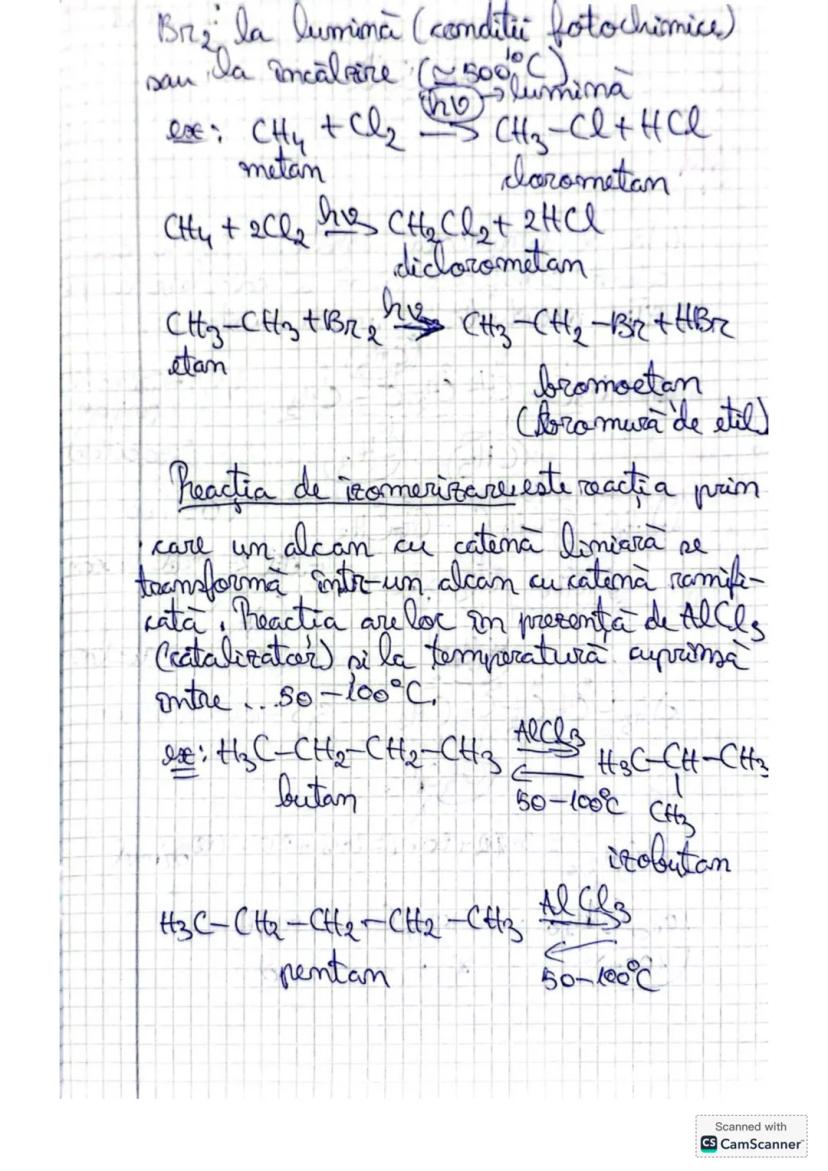 Br₂, la lumină (condiții fotochimice)
sau la încălzire (≃500°C)
hν → lumină
ex: CH₄ + Cl₂ → CH₃–Cl + HCl
metan clorometan
CH₄ + 2Cl₂ hν→ CH₂Cl₂ + 2HCl
diclorometan
CH₃–CH₃ + Br₂ hν→ CH₃–CH₂–Br + HBr
etan
bromoetan
(bromură de etil)
Reacția de izomerizare este reacția prin
care un alcan cu catenă liniară se
transformă într-un alcan cu catenă ramifi-
cată. Reactia are loc în prezență de AlCl₃
(catalizator) si la temperatură cuprinsă
între ...50–100°C.
ex: H₃C–CH₂–CH₂–CH₃ AlCl₃ ⇌ H₃C–CH–CH₃
butan 50–100°C CH₃
izobutan
H₃C–CH₂–CH₂–CH₂–CH₃ AlCl₃ ⇌
pentan 50–100°C
Scanned with
CS CamScanner